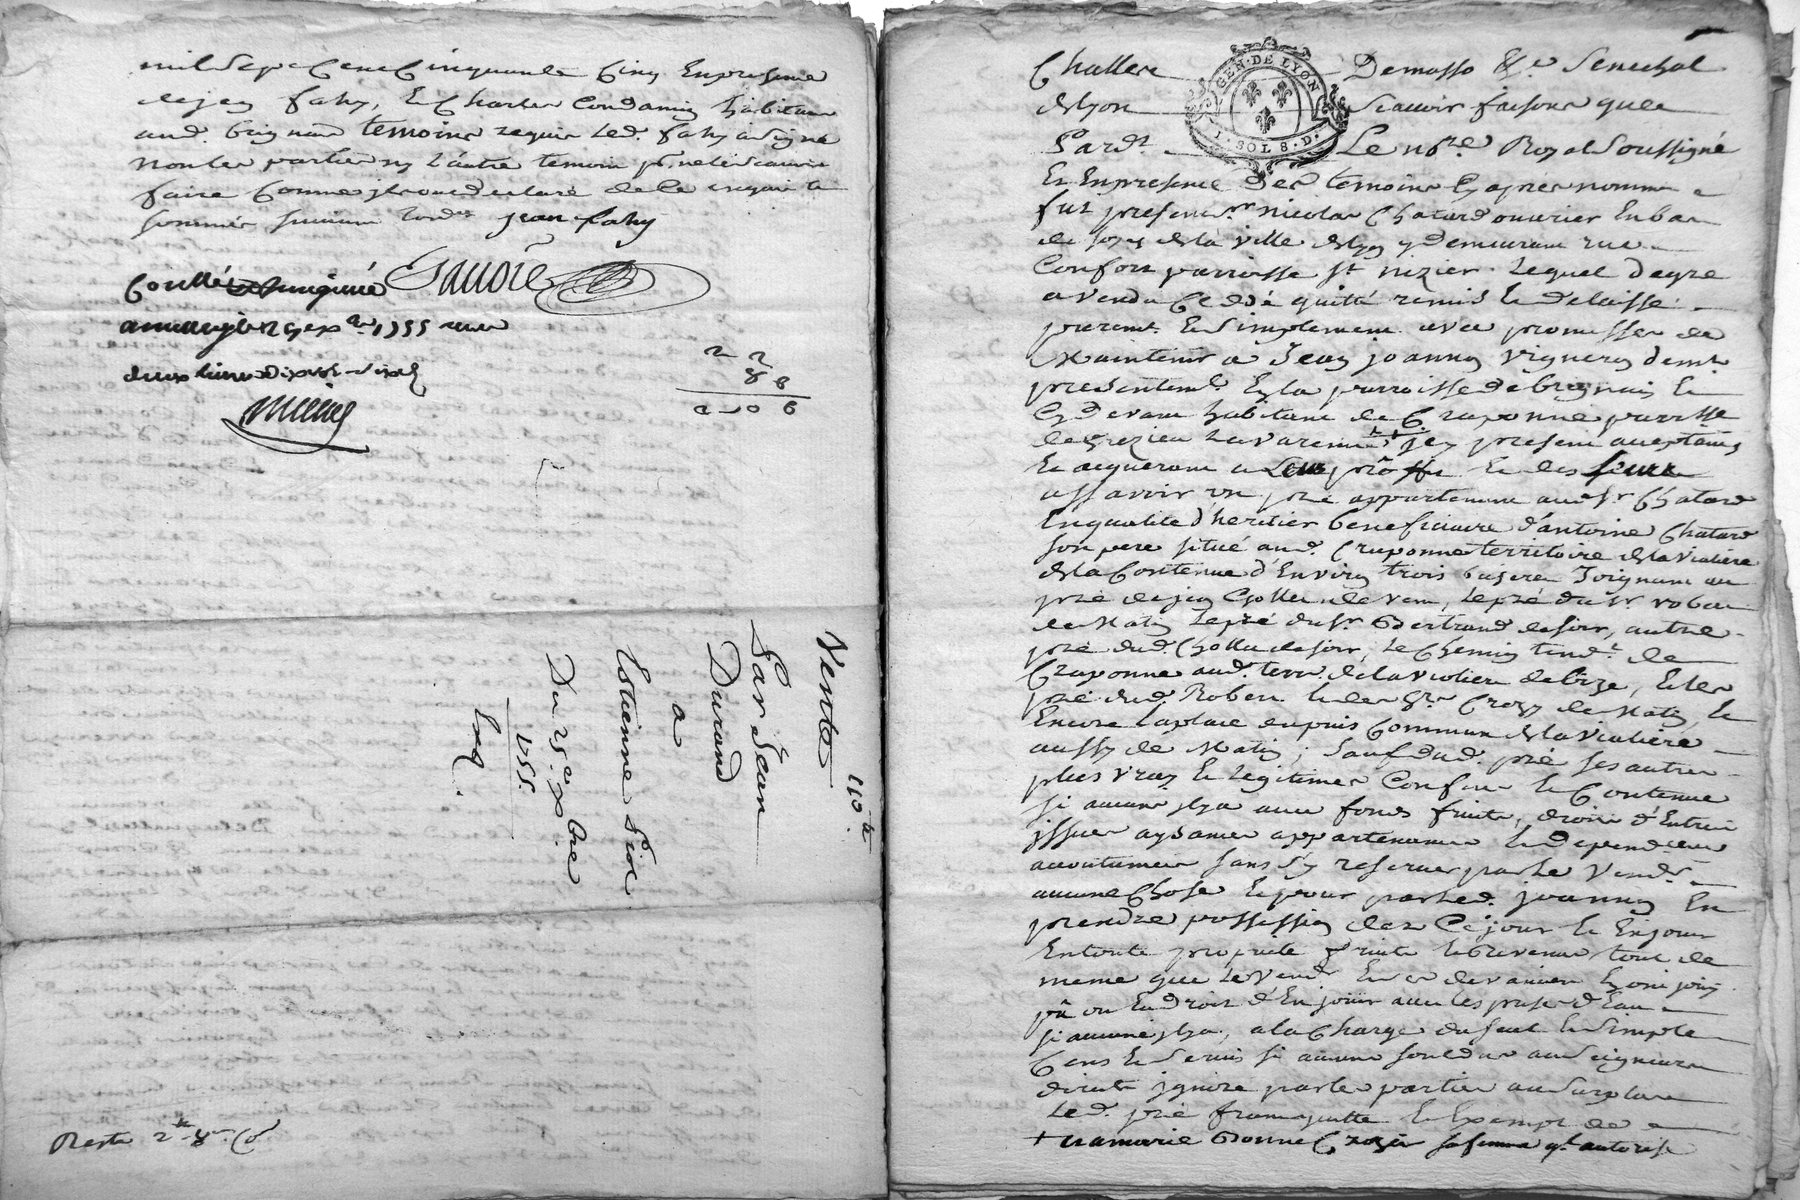 mil Sept Cent Cinquante Cinq En presence
de jean fahy, et Charles Condamin habitans
aud. brignais temoins requis led. fahy a signé
non les parties ny l'autre temoin pr ne le scavoir
faire comme ils ont declaré de ce enquis et
sommés suivant lord.e jean fahy
Savoie
Controllé
a 1755 reçu
deux livres dix sols
2 2
8 8
2 10 6
110 #
Vente
Par Jean
Durand
a
Estienne Piot
Du 25.e 9bre
1755.
Exp.
Reste 2 # 8 s
Challere
GEN. DE LYON
1. SOL 8. D.
Demasso &.e Senechal
de lyon Scavoir faisons que
Pard.t Le no.re Royal Soussigné
Et En presence Des temoins Cy apres nommés
fut present sr nicolas Chatard ouvrier En bas
de soye de la ville de lyon y demeurant rue
Confort parroisse st nizier. Lequel de gré
a vendu Cedé quitté remis et delaissé
purem.t et Simplement avec promesse de
Maintenir a Jean joannon vigneron dem.t
presentem.t En la parroisse de brignais et
Cy devant habitant de Craponne parr.sse
de grezieu La varenne + icy present acceptant
et acquerant a Leur proffit et des leurs
assavoir un pré appartenant aud. Sr Chatard
En qualité d'heritier beneficiaire d'antoine Chatard
son pere situé aud. Craponne territoire de la Violiere
de la Contenue d'Environ trois bicherées Joignant au
pré de jean Chollet de vent, le pré du sr robert
de Matin le pré du sr. Bertrand de soir, autre
pré dud. Chollet de soir, le Chemin tend.t de
Craponne aud. terr.e de la violiere de bize, et les
pré dud. Robert et des Srs Crozy de Matin, et
Encore la place du puis Commun de la Violiere
aussy de Matin; Sauf dud. pré ses autres
plus vrays et Legitimes Confins et Contenue
si aucuns il y a avec fonds fruits, droits d'Entrée
issues aysances appartenances et dependances
accoutumées sans s'y reserver par le Vend.r
aucune Chose et pour par led. joannon En
prendre possession des Ce jour et En jouir
En toute proprieté fruits et Revenus tout de
meme que le Vend.r et ses devanciers En ont joui
pû ou Eu droit d'En jouir avec les prises d'Eau
si aucune il y a, a la Charge du seul et Simple
Cens et Servis si aucun sont dus aux Seigneurs
directs ignoré par les parties au Surplus
Led. pré franc quitte et Exempt de
+ et a marie Bonne Crozier sa femme ql autorise